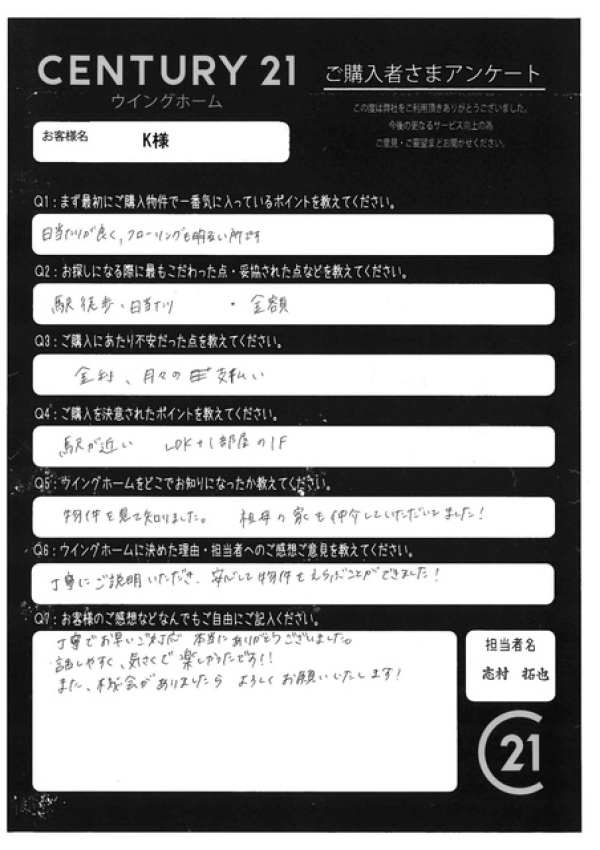 CENTURY 21
ウイングホーム
ご購入者さまアンケート
この度は弊社をご利用頂きありがとうございました。
今後の更なるサービス向上の為
ご意見・ご要望までお聞かせください。
お客様名 K様
Q1:まず最初にご購入物件で一番気に入っているポイントを教えてください。
日当たりが良く、フローリングも明るい所です
Q2:お探しになる際に最もこだわった点・妥協された点などを教えてください。
駅徒歩・日当たり ・ 金額
Q3:ご購入にあたり不安だった点を教えてください。
金利、月々の 支払い
Q4:ご購入を決意されたポイントを教えてください。
駅が近い LDK+1部屋の1F
Q5:ウイングホームをどこでお知りになったか教えてください。
物件を見て知りました。 祖母の家も仲介していただいてました!
Q6:ウイングホームに決めた理由・担当者へのご感想ご意見を教えてください。
丁寧にご説明いただき、安心して物件をえらぶことができました!
Q7:お客様のご感想などなんでもご自由にご記入ください。
丁寧でお早いご対応 本当にありがとうございました。
話しやすく、気さくで楽しかったです!!
また、機会がありましたら よろしくお願いいたします!
担当者名
志村 拓也
21